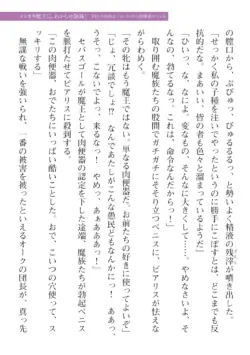 の膣口から、ぶぴゅっ、びゅるるるっ、と勢いよく精液の残滓が噴き出す。
「せっかく私の子種を注いでやったというのに勝手にこぼすとは、どこまでも反抗的だな。まあいい、皆の者も色々と溜まっているようだ」
「ひっ、な、なによ、変なもの　そんなに大きくして、やめなさいよ、そんなもの出していいわけないわ、これは、命令なんだからっ！」
取り囲む魔族たちの股間でガチガチにそそり立つペニスに、ピアリスが怯えながらわめく。
「その北はもう魔王ではない。単なる肉便器だ。お前たちの好きに使ってよいぞ」
「じょ、冗談でしょ！？　なんであたしがこんな愚民どもなんかにーっ！　あっ！？　や、やめっ、こないでよっ、来るなっ！　やめっ、あぁああああっ！」
セバスゴールが魔王として肉便器の認定を下した途端、魔族たちが勃起ペニスを脈打たせてピアリスに殺到する。
「この肉便器、おでたちにいっぱい酷いことした。おで、こいつの穴使って、スッキリする」
無謀な戦争により、一番の被害を被ったといえるオークの団長が、真っ先